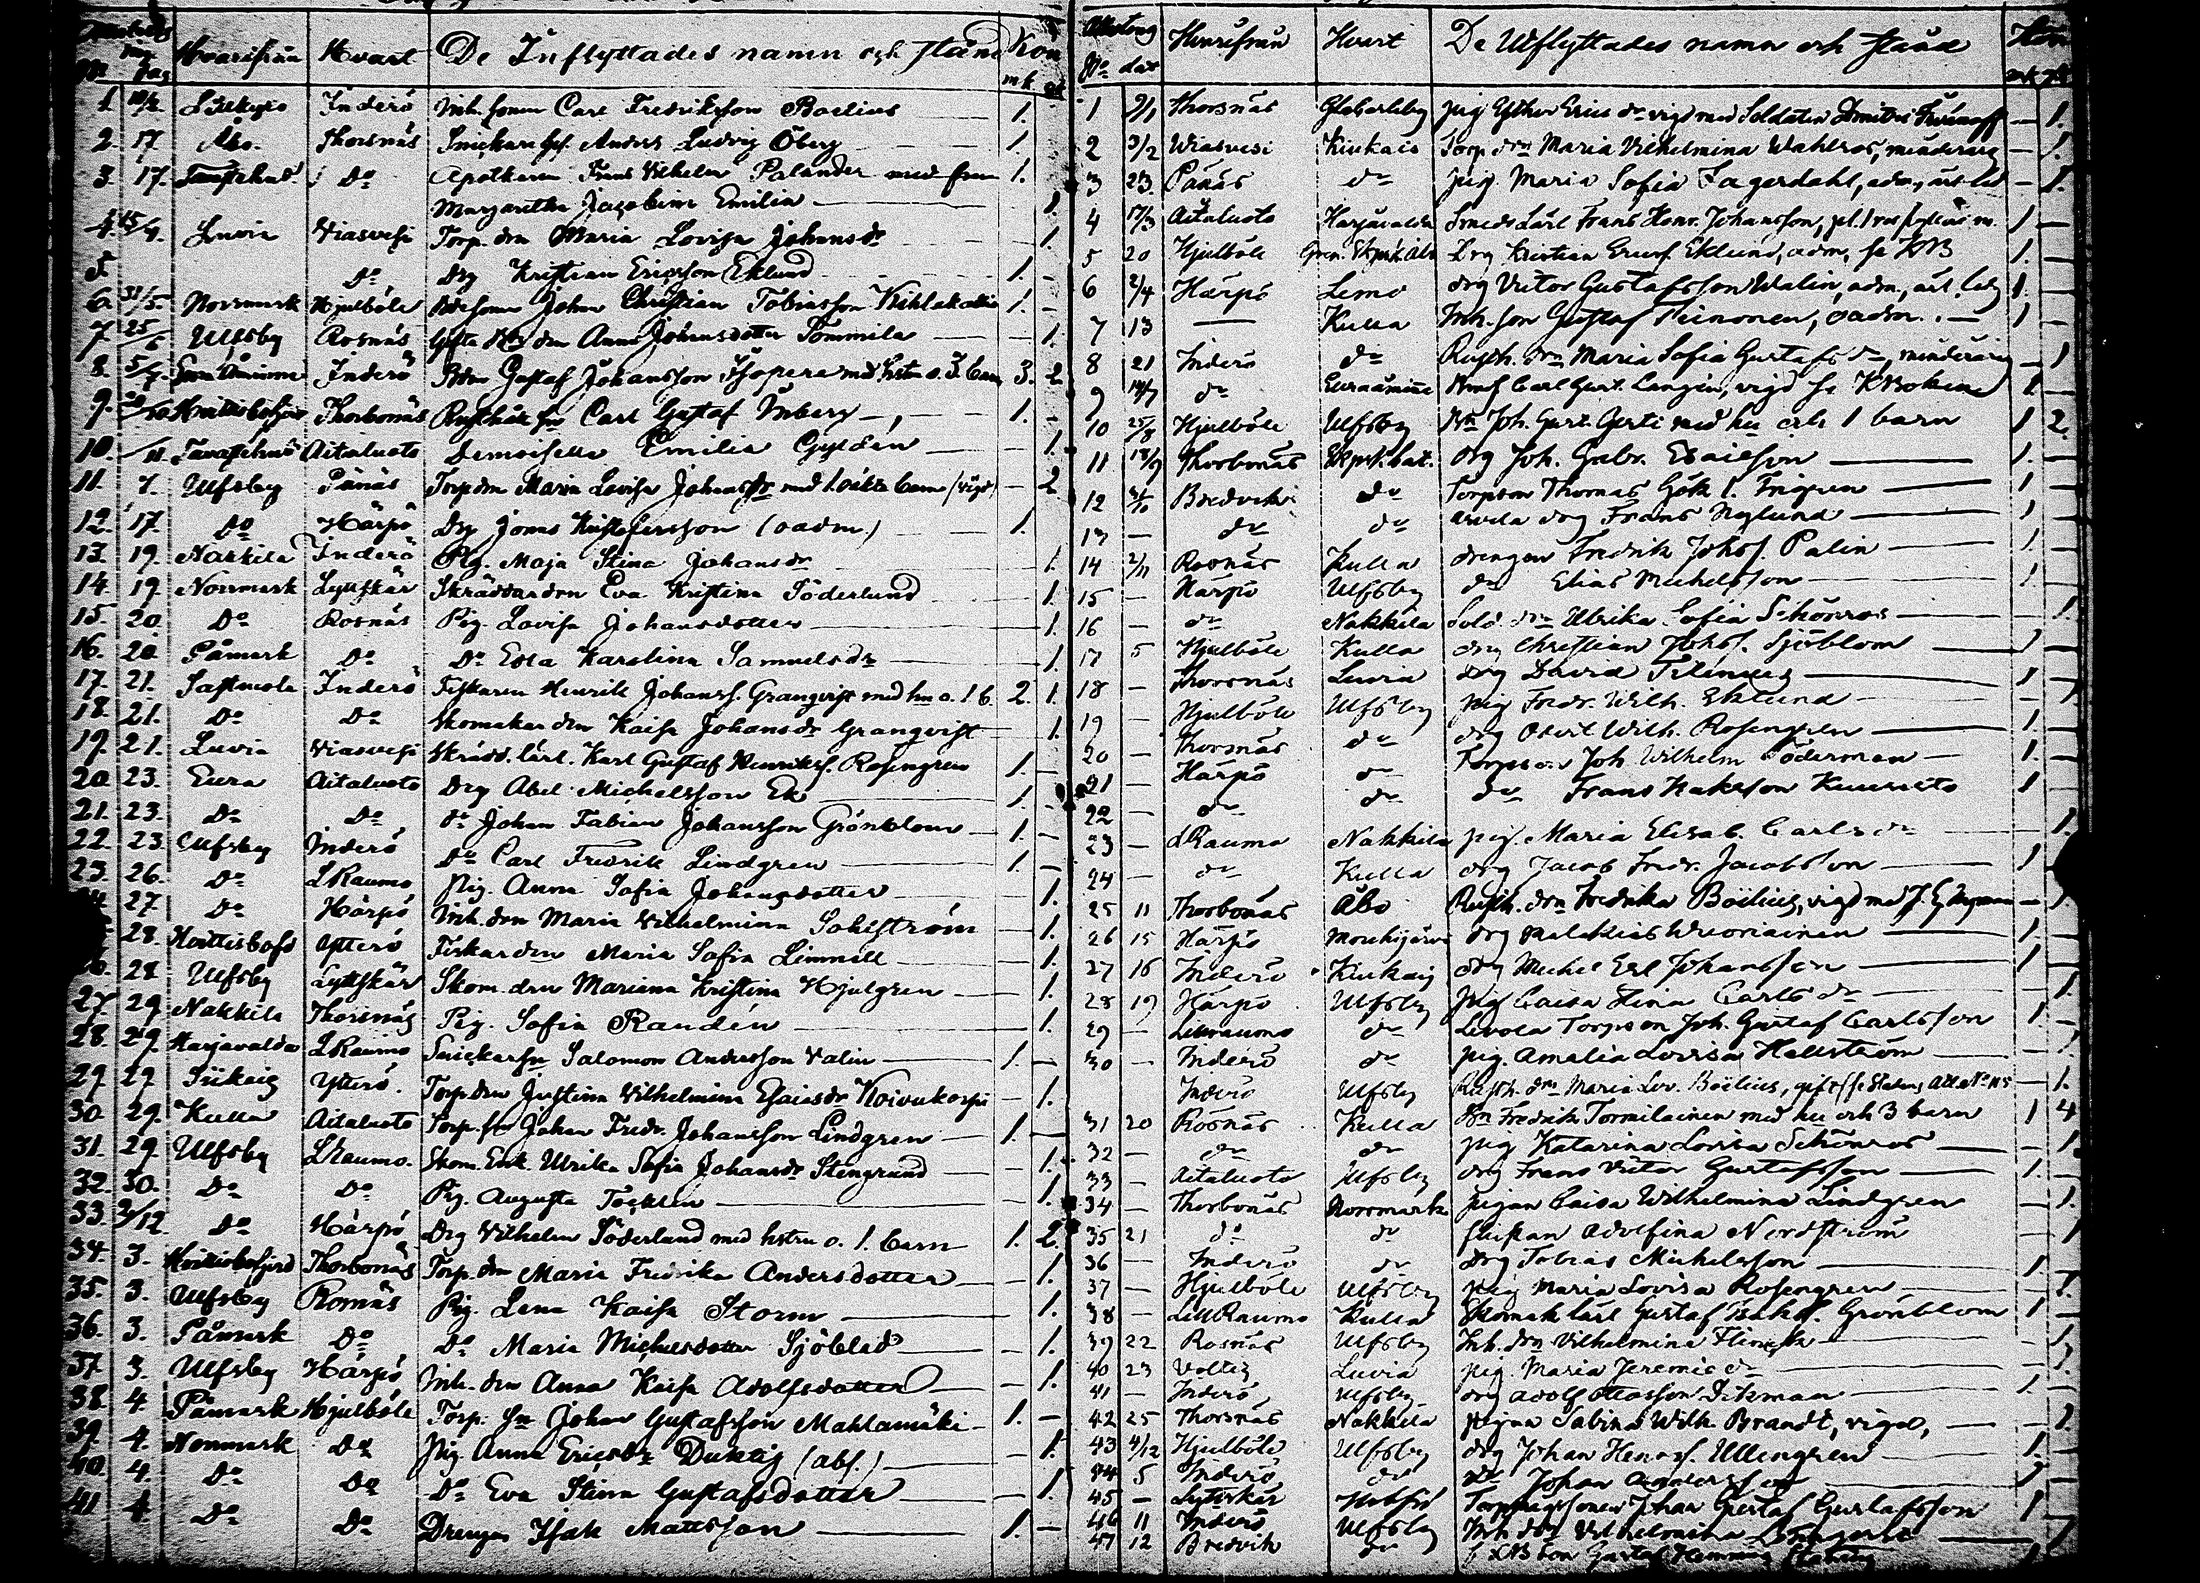 Hvarifrån Hvart De Inflyttades namn och stånd Kön
No dag mk qk
1. Inderö Inh. sonen Carl Fredriksson Boelius 1.
2. 17 Åbo. Thorsnäs Snickare Ges. Anders Ludvig Öberg 1.
3. 17. Do Apothekaren Frans Vilhelm Palander med frun 1.
Margaretha Jacobina Emilia 1.
4. Luvia Viasvesi Torp. drn Maria Lovisa Johansdr 1.
5. Do Drg Kristian Ericsson Eklund 1. -
6. 31/5. Norrmark Hjulböle John Christian Tobiasson 1. -
7. 25 Ulfsby Rosnäs Anna Johansdotter Tommila 1.
8. 5/9. Inderö Gustaf Johansson med hstn o. 3. barn 3. 2
9. Thorbonäs Rusthåll. sn Carl Gustaf Inberg 1. -
10. Tavastehus Aitaluoto Demoiselle Emilia Gyldén 1.
11. 7. Ulfsby Pånäs Torp. drn Maria Lovisa Johansdr med 1. oäkta barn (vigd) - 2
12. 17. Do Härpö Drg Jonas Kristofersson (oadm.) 1.
13. 19. Nakkila Inderö Pig. Maja Stina Johansdr 1.
14. 19. Norrmark Lyttskär Skräddardrn Eva Kristina Söderlund 1.
15. 20. Do Rosnäs Pig. Lovisa Johansdotter 1.
16. 20. Påmark Do Do Eva Karolina Samuelsdr 1.
17. 21. Sastmola Inderö Fiskaren Henrik Johanss. Granqvist med hu o. 1 b. 2. 1.
18. 21. Do Do Skomakardrn Kaisa Johansdr Granqvist 1.
19. 21. Luvia Viasvesi Skrädd. lärl. Karl Gustaf Henrikss. Rosengren 1. -
20. 23. Eura Aitaluoto Drg Abel Michelsson Ek 1. -
21. 23. Do Do Do Johan Fabian Johansson Grönblom 1. -
22. 23. Ulfsby Inderö Do Carl Fredrik Lindgren 1. -
23. 26. Do L Raumo Pig. Anna Sofia Johansdotter 1.
27. Do Härpö Inh. drn Maria Vilhelmina Sahlström 1.
28. Ytterö Fiskardrn Maria Sofia Limnell 1.
28 Ulfsby Lyttskär Skom. drn Mariana Kristina Hjulgren 1.
27. 29. Nakkila Thorsnäs Pig. Sofia Randén 1.
28. 29. Harjavalda L Raumo Snickarsn Salomon Andersson Valin 1. -
29. 29. Siikais Ytterö. Torp. drn Justina Vilhelmina Esaiasdr Koivukorpi - 1.
30. 29. Kulla Aitaluoto Torp. sn Johan Fredr. Johansson Lindgren 1. -
31. 29. Ulfsby L Raumo. Skom. Enk. Ulrika Sofia Johansdr Stengrund - 1.
32. 30. Do Do Pig. Augusta Täcklin 1.
33. 2/12. Do Härpö Drg Vilhelm Söderlund med hstru o. 1. barn 1. 2.
34. 3. Thorbonäs Torp. drn Maria Fredrika Andersdotter 1.
35. 3. Ulfsby Rosnäs Pig. Lena Kaisa Storm 1.
36. 3. Påmark Do Do Maria Michelsdotter Sjöblad 1.
37 3. Ulfsby Härpö Inh. drn Anna Kaisa Adolfsdotter 1.
38. 4 Påmark Hjulböle Torp. sn Johan Gustafsson Mahlamäki 1. -
39. 4. Norrmark Do Pig Anna Ericsdr Duktig (abs.) 1.
40. 4 Do Do Do Eva Stina Gustafsdotter 1.
41 4 Do Do Drengen Isak Mattsson 1. -
Hvarifrån Hvart De Utflyttades namn och stånd Kön
No dat mk qk
1 2/1 Thorsnäs pig Ester Ericsdr vigd med Soldaten Dmitri - 1.
2 2/2 Wiasvesi Kiukais Torp drn Maria Vilhelmina Wahlros, minderårig - 1.
3 23 Pånäs do pig Maria Sofia Fagerdahl, adm., - 1.
4 17/3 Aitaluoto Harjavalda Smeds Lärl Frans Henr. Johansson, 1 -
5 20 Hjulböle Drg Kristian Ericss. Eklund, adm, se KB 1.
6 2/4 Härpö Lemo drg Victor Gustafsson Walin, adm., 1.
7 13 — Kulla Inh. son Gustaf Heinonen, oadm. 1
8 21 Inderö do Rusth. drn Maria Sofia Gustafsdr, minderårig - 1
9 do Euraåminne Carl Gust. Langén, vigd 1
10 25/8 Hjulböle Ulfsby Joh. Gust. Gerti med hu och 1 barn 1 2.
11 18/9 Thorbonäs drg Joh. Gabr. Esaiesson 1.
12 Bredviki do Torpson Thomas Gök l. Frigren 1
13 — do do drg Frans Nylund 1
14 2/11 Rosnäs Kulla drengen Fredrik Johss. Palin 1.
15 — Härpö Ulfsby do Elias Michelsson 1
16 — do Nakkila Sold. drn Ulrika Sofia Schönros 1.
17 5 Hjulböle Kulla drg Christian Johss. Sjöblom 1
18 — Thorsnäs Luvia drg David Tilenius 1
19 — Hjulböle Ulfsby pig Fredr. Wilh. Eklund 1
20 — Thorsnäs do drg Otvil Wilh. Rosengren 1.
21 — Härpö do Torpson Joh. Wilhelm Söderman 1.
22 — do do do Frans 1
23 — L Raumo Nakkila pig. Maria Elisab. Carlsdr 1.
24 — do Kulla drg Jacob Fredr. Jacobsson 1
25 11 Thorbonäs Åbo Rusth. drn Fredrika Boëlius, vigd med - 1
26 15 Härpö Mouhijärvi drg Malakias Wuoriainen 1.
27 16 Inderö Kiukais drg Michel Johansson 1
28 19 Härpö Ulfsby pig Caisa Stina Carlsdr 1.
29 — Lillraumo do Torpson Joh. Gustaf Carlsson 1
30 — Inderö do pig. Amalia Lovisa Hellström 1
Inderö Ulfsby Rusth. drn Maria Lov. Boëlius, gift - 1.
31 20 Rosnäs Kulla Fredrik Tormilainen med hu och 3 barn 1 4
32 — do do pig Katarina Lovisa Schönros 1.
33 — Aitaluoto Ulfsby drg Frans Victor Gustafsson 1.
34 — Thorbonäs Norrmark pigan Caisa Wilhelmina Lindgren 1.
35 21 do do flickan Adolfina Nordström 1
36 — Inderö do drg Tobias Michelsson 1
37 — Hjulböle Ulfsby pig Maria Lovisa Rosengren 1.
38 — Lill Raumo Kulla Skomak lärl Gustaf Grönblom 1
39 22 Rosnäs Ulfsby Inh. drn Vilhelmina Flinck 1.
40 23 Voltis Luvia pig. Maria Jeremiedr 1.
41 — Inderö Ulfsby drg Adolf Dikman 1.
42 25 Thorsnäs Nakkila pigan Sabina Wilh. Brandt, vigd, 1.
43 4/12 Hjulböle Ulfsby drg Johan Henrss. Ullengren 1.
44 5 Inderö do do Johan Andersson 1
45 — Lyttskär Johan Gustaf Gustafsson 1
46 11 Inderö Ulfsby Inh. drn Vilhelmina 1
47 12 Bredvik do Gustaf Hemming 1